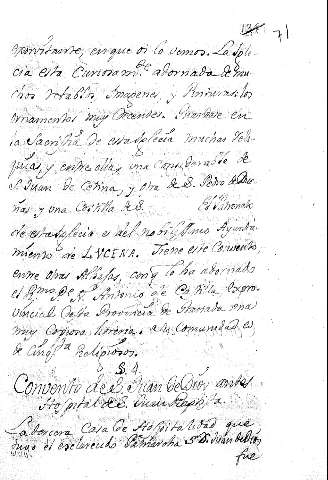 71
en que oi lo vemos. La Igle
cia esta Curiosam.te adornada de mu
chos retablos, Imagenes, y Pinturas los
ornamentos muy Decentes. Guardase en
la Sacristia de esta Iglecia muchas Reli
quias, y entre ellas, una de
S. Juan de Cetina, y otra de S. Pedro de Due
ñas, y una Costilla de S.
de esta Iglecia es del Ayunta
miento de LUCENA. Tiene este Convento
entre otras Alajas, con q lo ha adornado
el R.mo P.e Fr. Antonio de Castilla expro
vincial de la Provincia de Granada una
muy Copiosa libreria. a su Comunidad es
de Religiosos.
§. 4.
Convento de S. Juan de Dios, antes
Hospital de S. Juan Baptista.
La tercera Casa de Hospitalidad que
tuvo el esclarecido Patriarcha S. Juan de Dios
fue